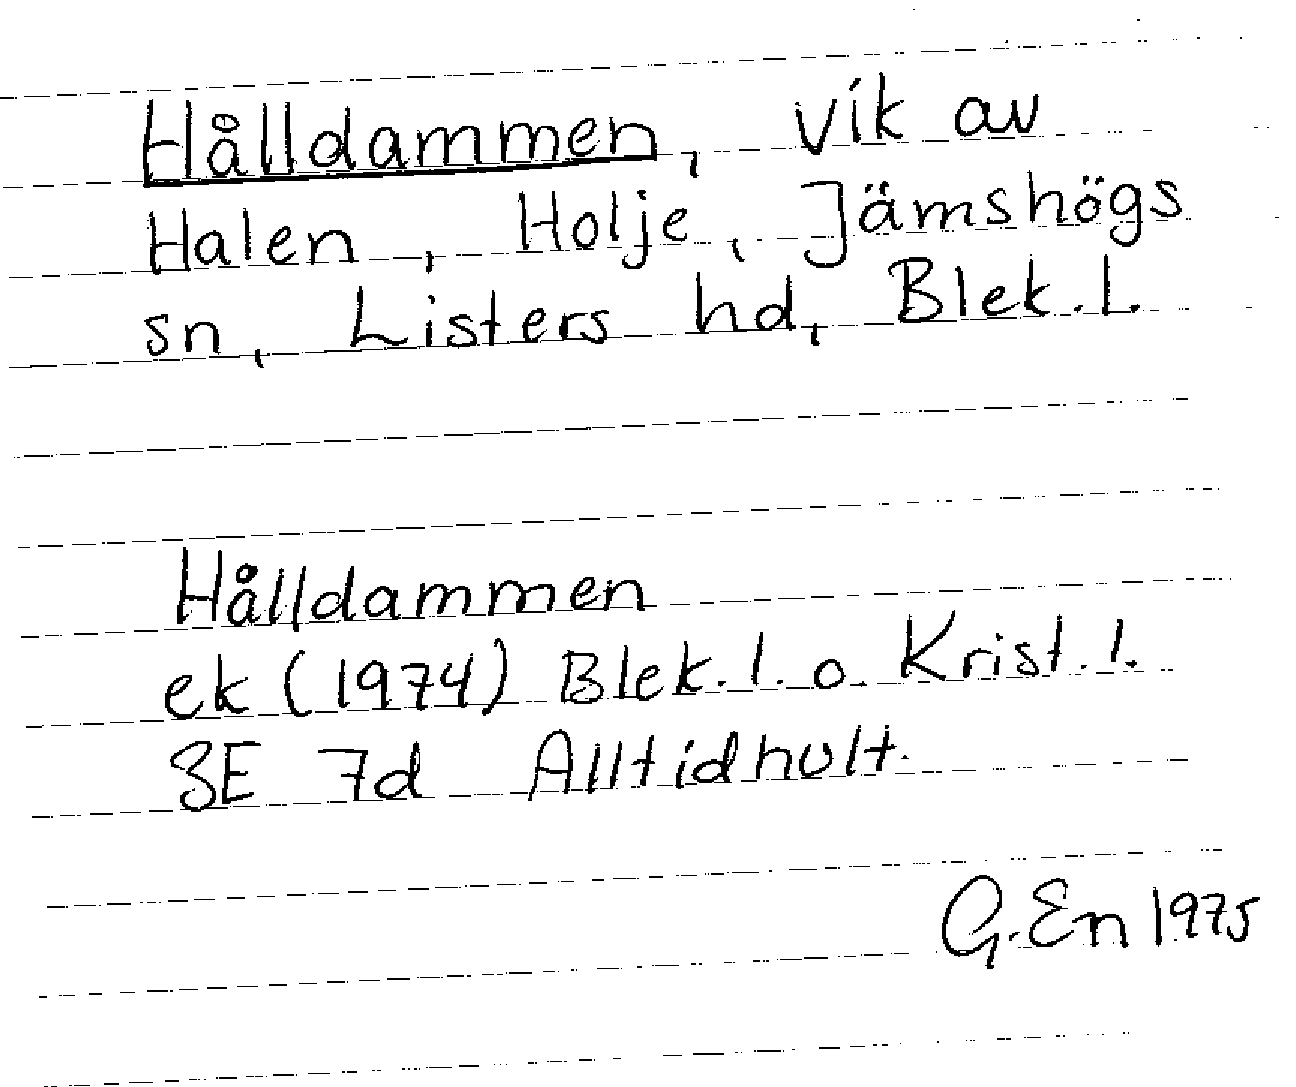 Hålldammen, vik av
Halen, Holje, Jämshögs
sn, Listers hd, Blek. l.
Hålldammen
ek (1974) Blek. l. o. Krist. l.
3E 7d Alltidhult.
G. En 1975